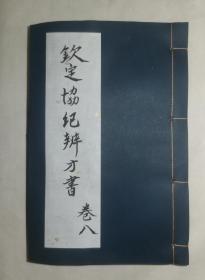 欽定協紀辨方書
卷八